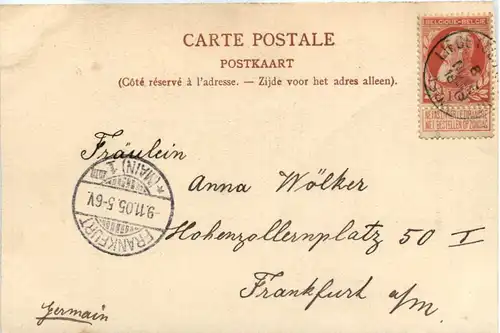 CARTE POSTALE
POSTKAART
(Côté réservé à l'adresse. — Zijde voor het adres alleen).
BELGIQUE·BELGIË
NE PAS LIVRER LE DIMANCHE
NIET BESTELLEN OP ZONDAG
Fräulein
Anna Wölker
Hohenzollernplatz 50 I
Frankfurt a/m.
Germain
FRANKFURT
-9.11.05.5-6V.
* (MAIN) 1.